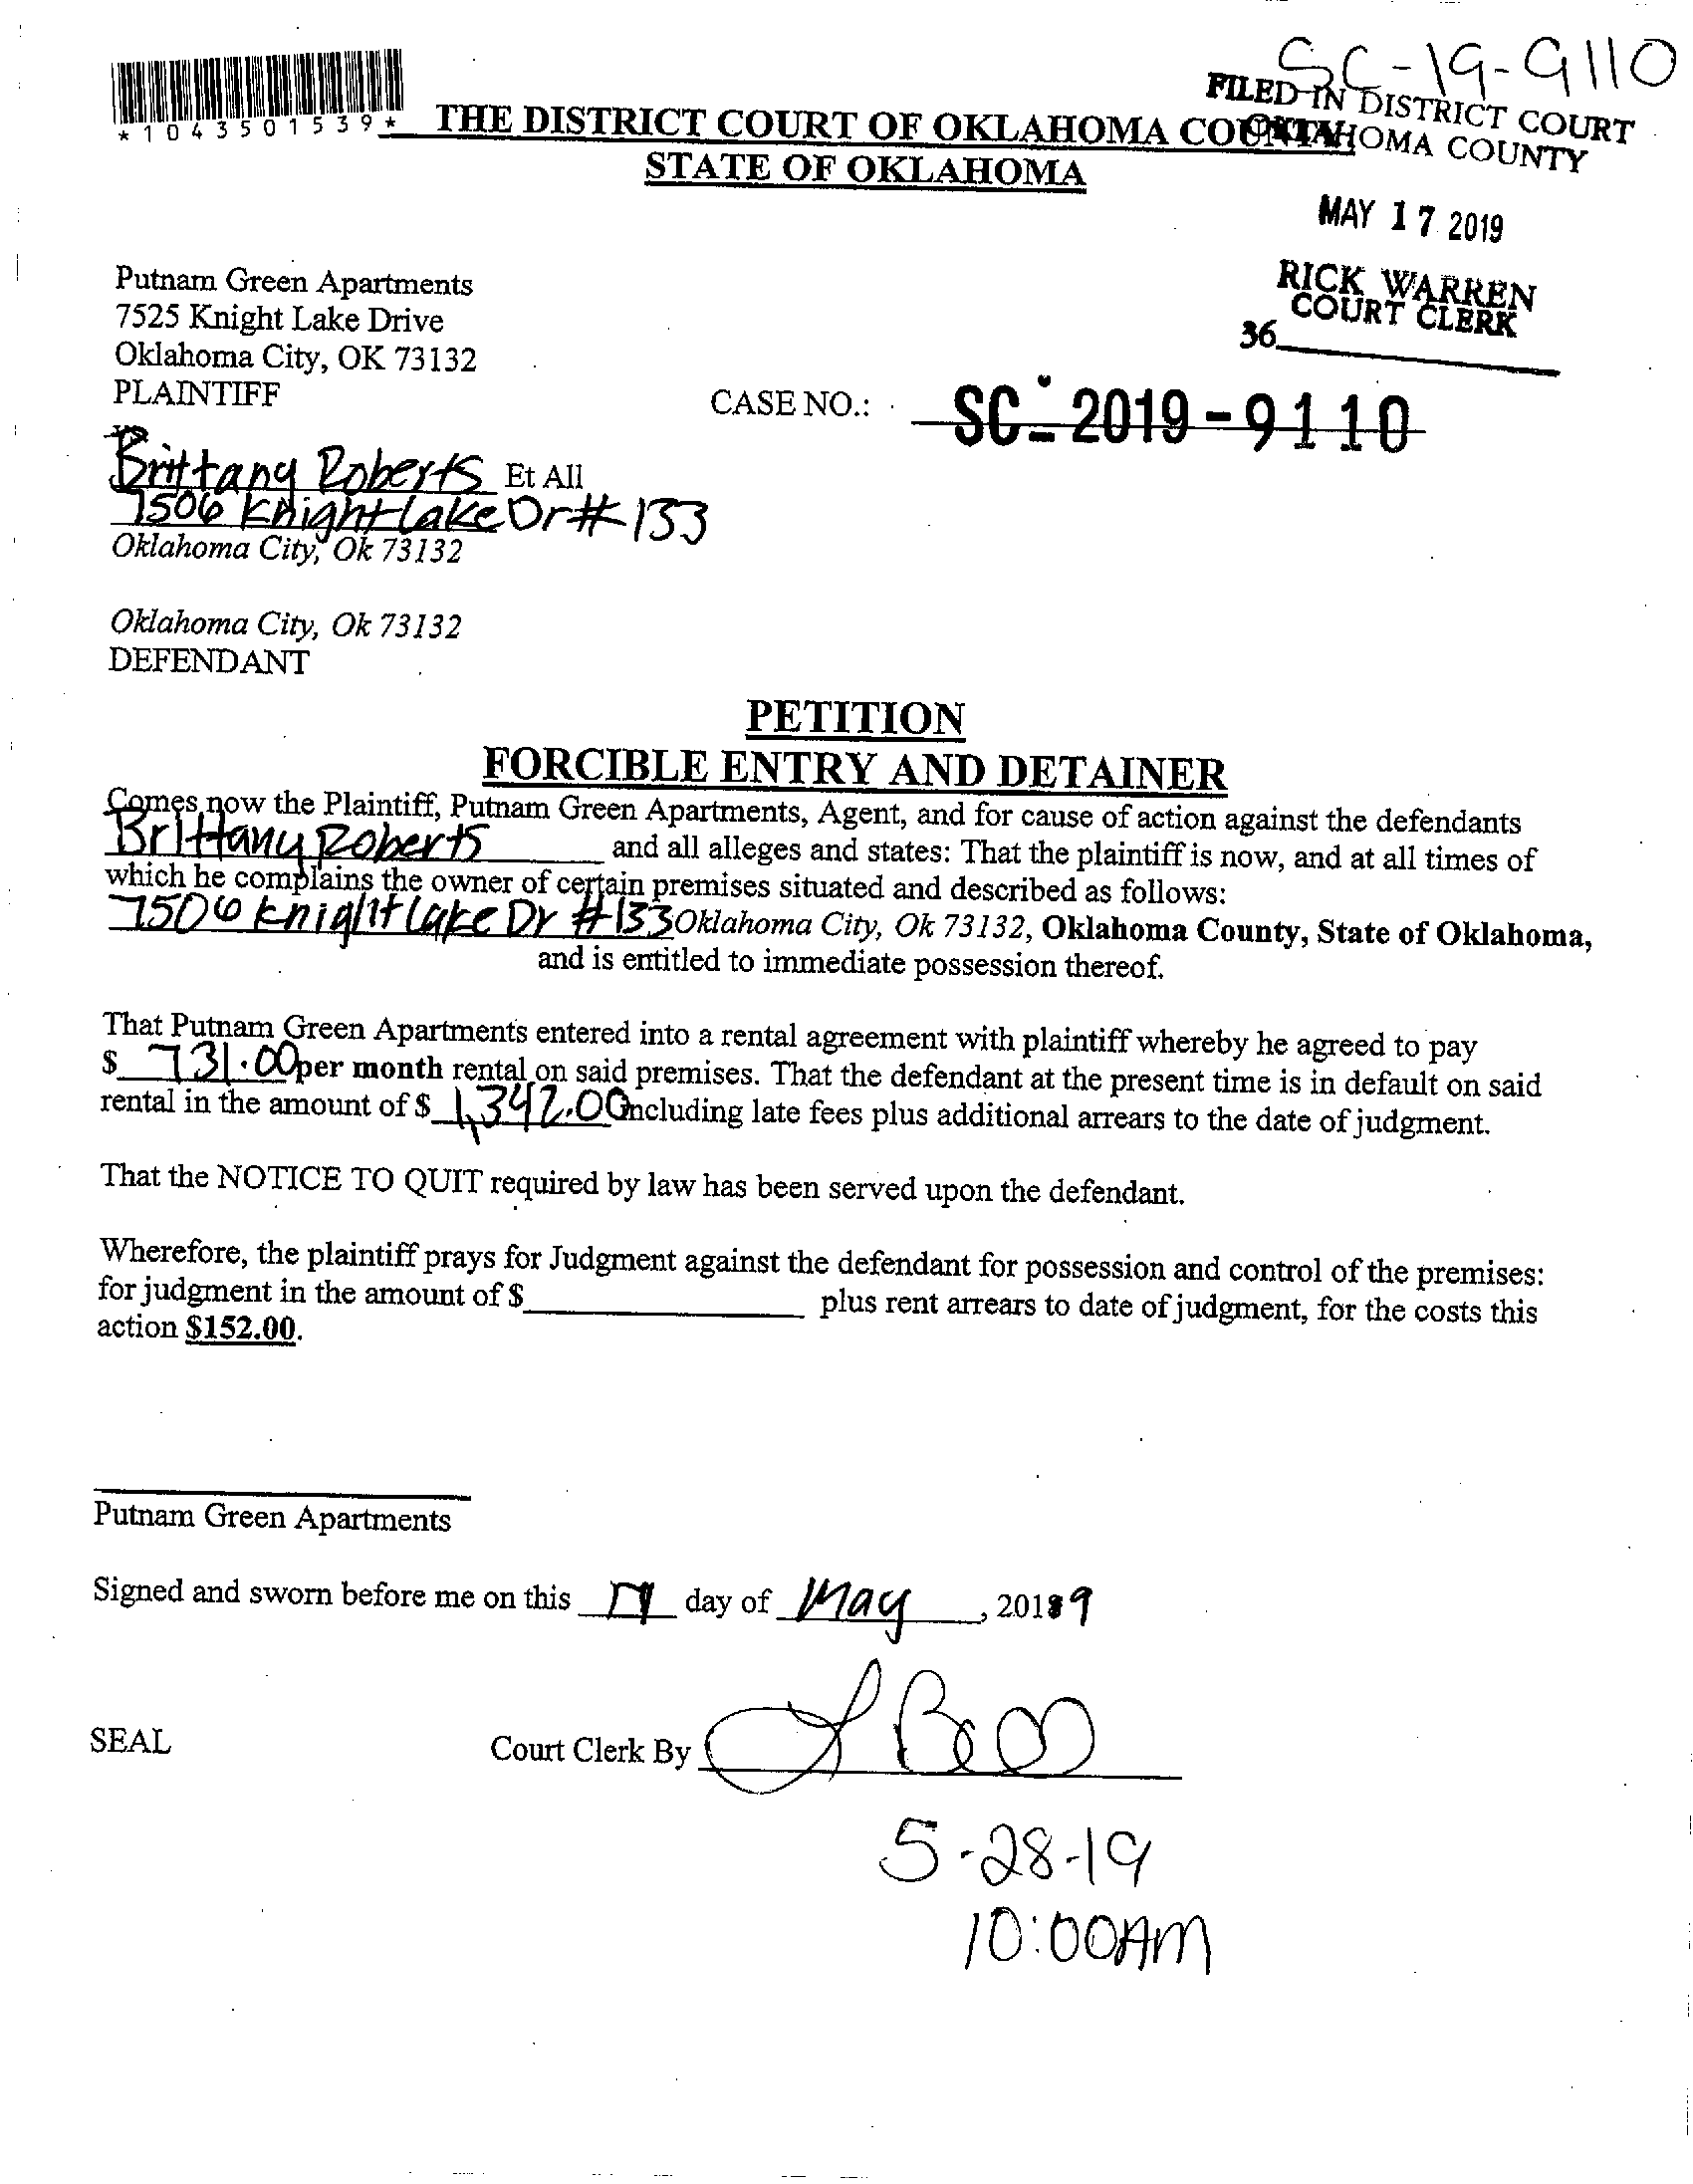 SC-19-9110
*1043501539*
THE DISTRICT COURT OF OKLAHOMA COUNTY
STATE OF OKLAHOMA
FILED IN DISTRICT COURT
OKLAHOMA COUNTY
MAY 17 2019
RICK WARREN
COURT CLERK
36
Putnam Green Apartments
7525 Knight Lake Drive
Oklahoma City, OK 73132
PLAINTIFF
CASE NO.: SC-2019-9110
vs
Brittany Roberts Et All
7506 Knight Lake Dr #133
Oklahoma City, Ok 73132
Oklahoma City, Ok 73132
DEFENDANT
PETITION
FORCIBLE ENTRY AND DETAINER
Comes now the Plaintiff, Putnam Green Apartments, Agent, and for cause of action against the defendants
Brittany Roberts and all alleges and states: That the plaintiff is now, and at all times of
which he complains the owner of certain premises situated and described as follows:
7506 Knight Lake Dr #133 Oklahoma City, Ok 73132, Oklahoma County, State of Oklahoma,
and is entitled to immediate possession thereof.
That Putnam Green Apartments entered into a rental agreement with plaintiff whereby he agreed to pay
$ 731.00 per month rental on said premises. That the defendant at the present time is in default on said
rental in the amount of $ 1,342.00 including late fees plus additional arrears to the date of judgment.
That the NOTICE TO QUIT required by law has been served upon the defendant.
Wherefore, the plaintiff prays for Judgment against the defendant for possession and control of the premises:
for judgment in the amount of $ plus rent arrears to date of judgment, for the costs this
action $152.00.
Putnam Green Apartments
Signed and sworn before me on this 17 day of May, 2019
SEAL
Court Clerk By
5-28-19
10:00AM